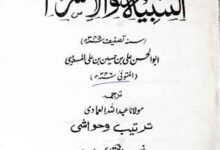 التنبیہ والاشراف
(سنہ تصنیف ۳۴۵ھ)
ابوالحسن علی بن حسین بن علی المسعودی
(المتوفی ۳۴۶ھ)
ترجمہ
مولانا عبداللہ العمادی
ترتیب وحواشی